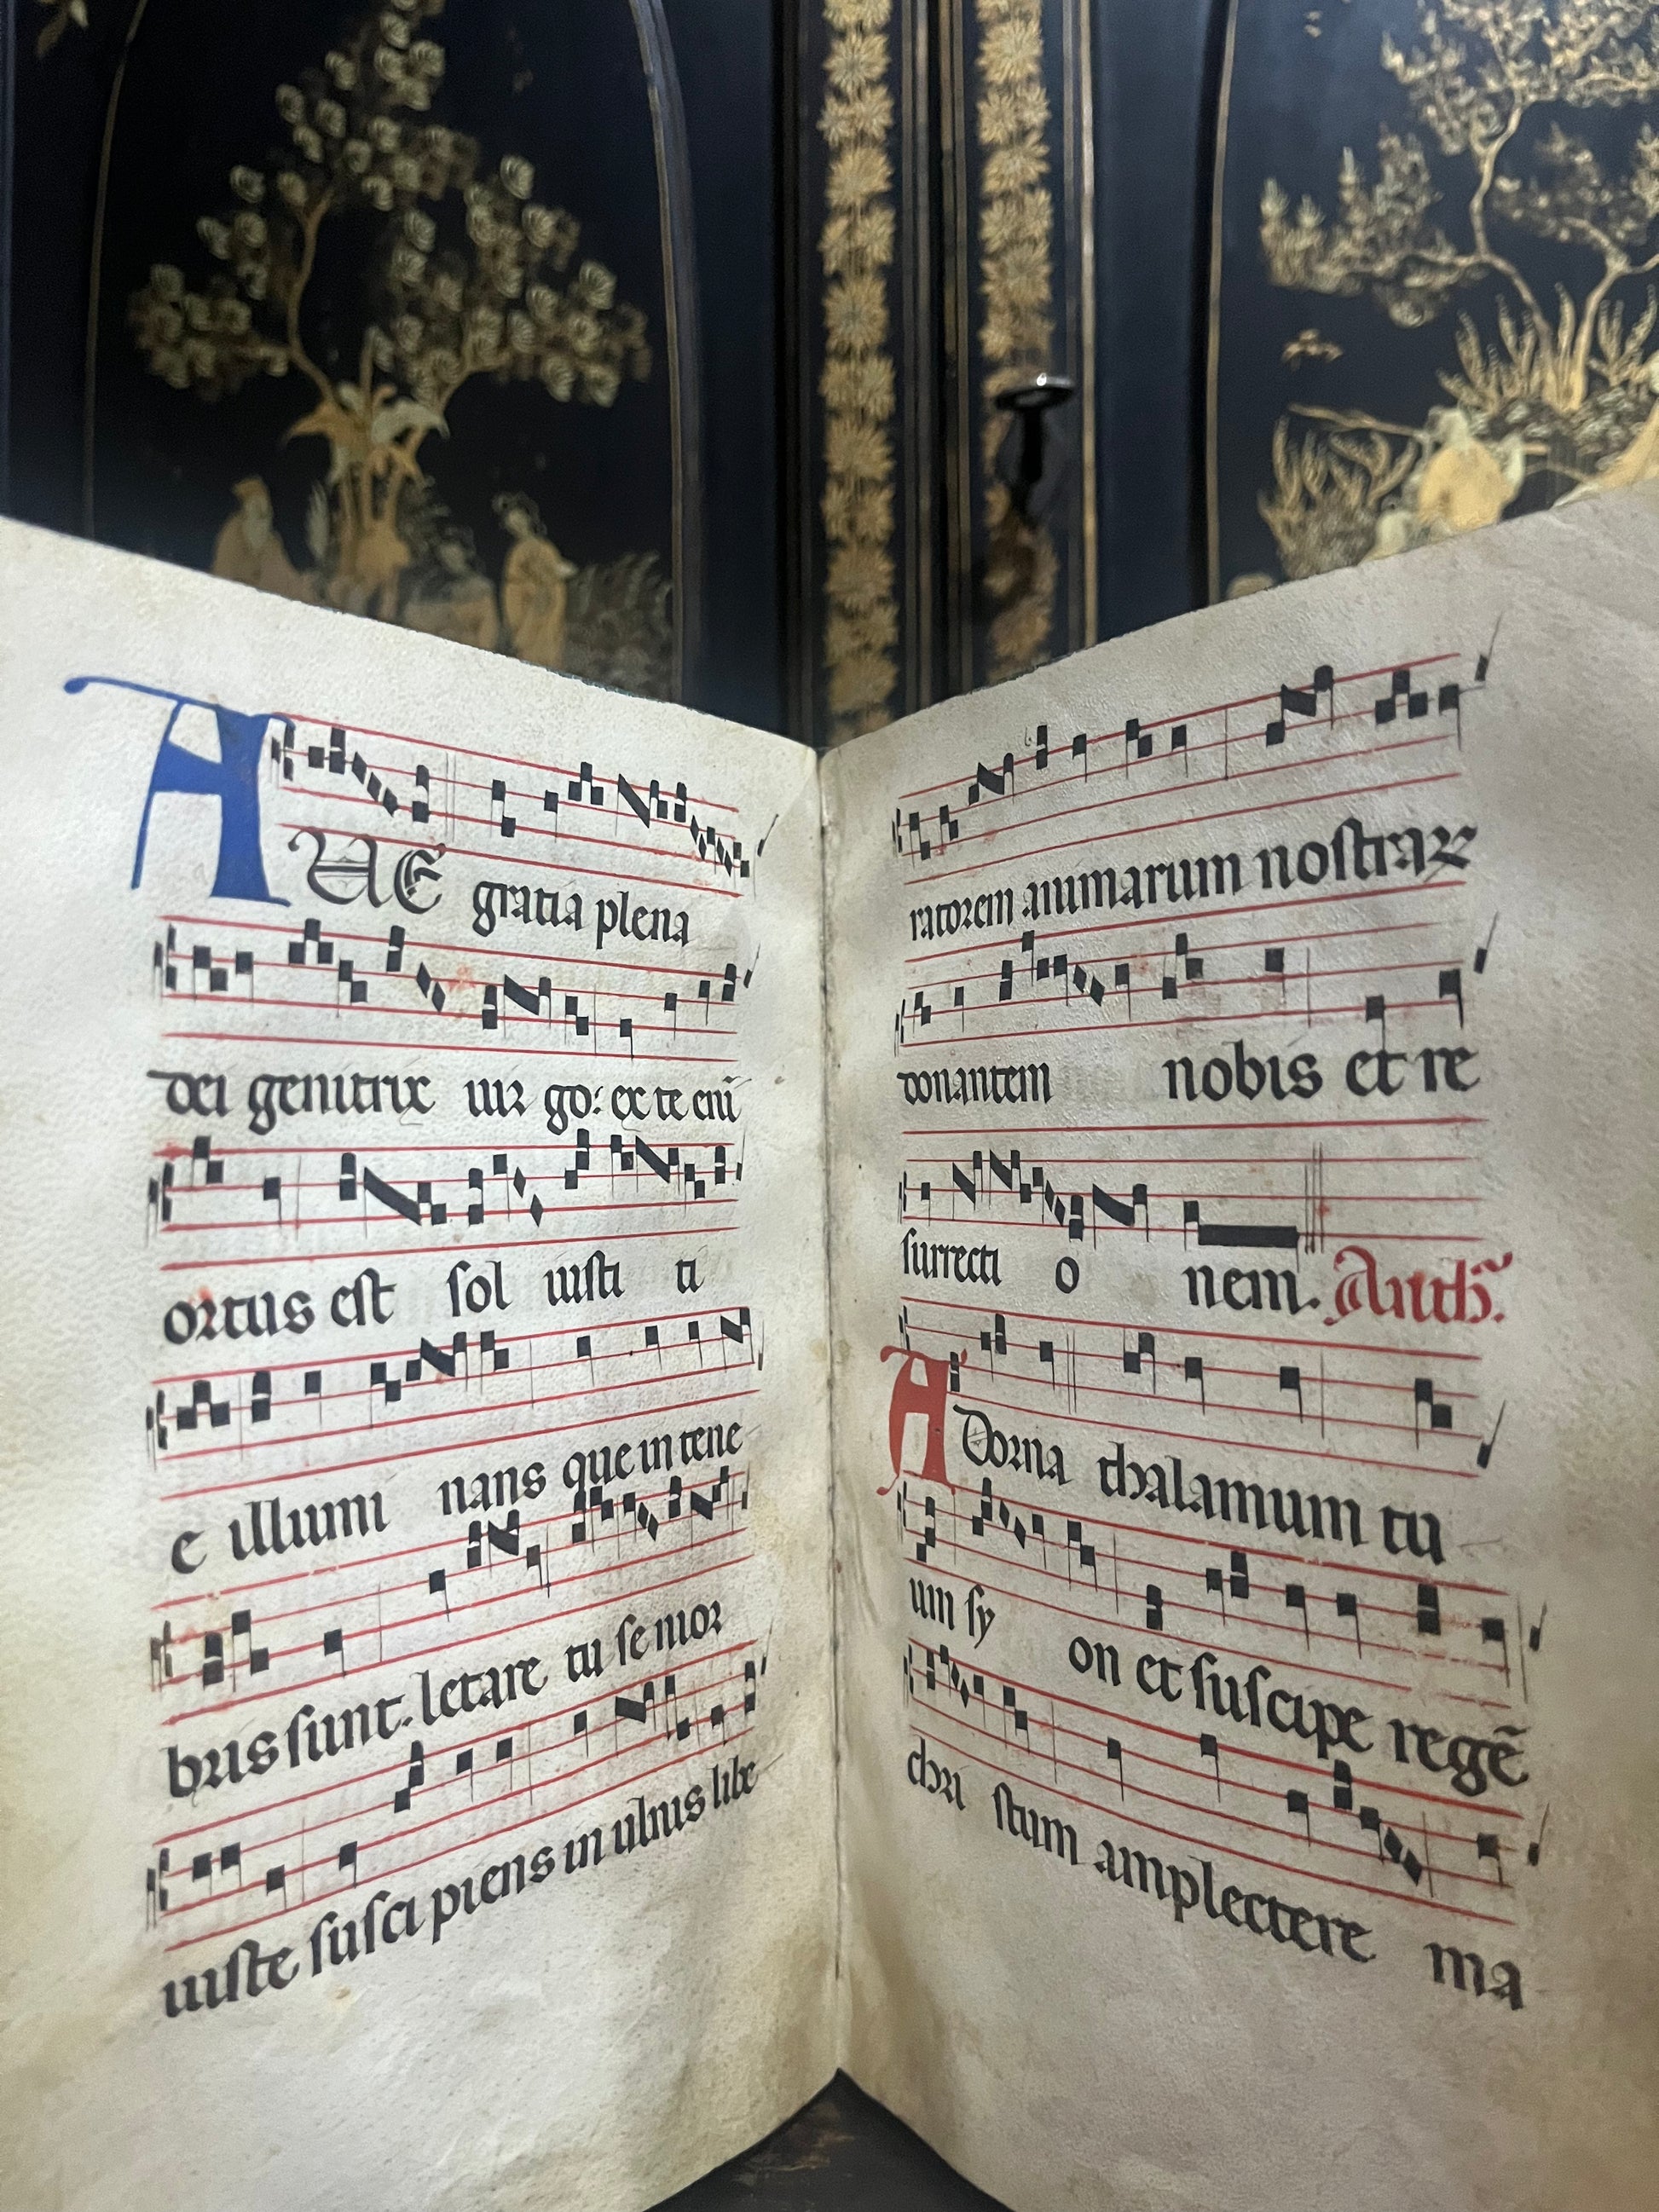 AUE gratia plena
dei genitrix uir go: ex te eni̅
ortus est sol iusti ti
e illumi nans que in tene
bris sunt. letare tu se nior
iuste susci piens in ulnis libe
ratorem animarum nostraꝝ
donantem nobis et re
surrecti o nem. Anth̃.
Adorna thalamum tu
um sy on et suscipe regē
chri stum amplectere ma